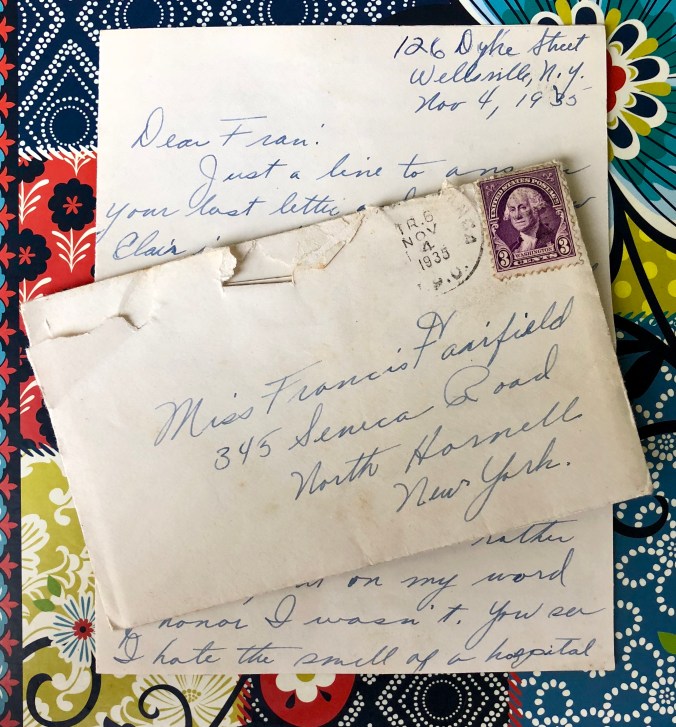 126 Dyke Street
Wellsville, N.Y.
Nov 4, 1935
Dear Fran:
Just a line to
your last
Clair
TR. 6
NOV
4
1935
UNITED STATES POSTAGE
3 WASHINGTON 3
CENTS
Miss Francis Fairfield
345 Seneca Road
North Hornell
New York.
rather
on my word
honor I wasn't. You see
I hate the smell of a hospital